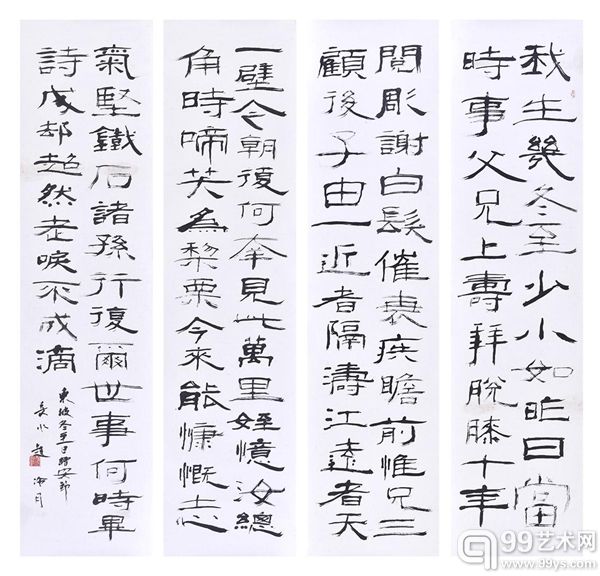 我生幾冬至少小如昨日當
時事父兄上壽拜脫膝十年
閱彫謝白髮催衰疾瞻前惟兄三
顧後子由一近者隔濤江遠者天
一壁今朝復何幸見此萬里姪憶汝總
角時啼笑為棃栗今來能慷慨志
氣堅鐵石諸孫行復爾世事何時畢
詩成却超然老淚不成滴
東坡冬至日贈安節
99艺术网
www.99ys.com